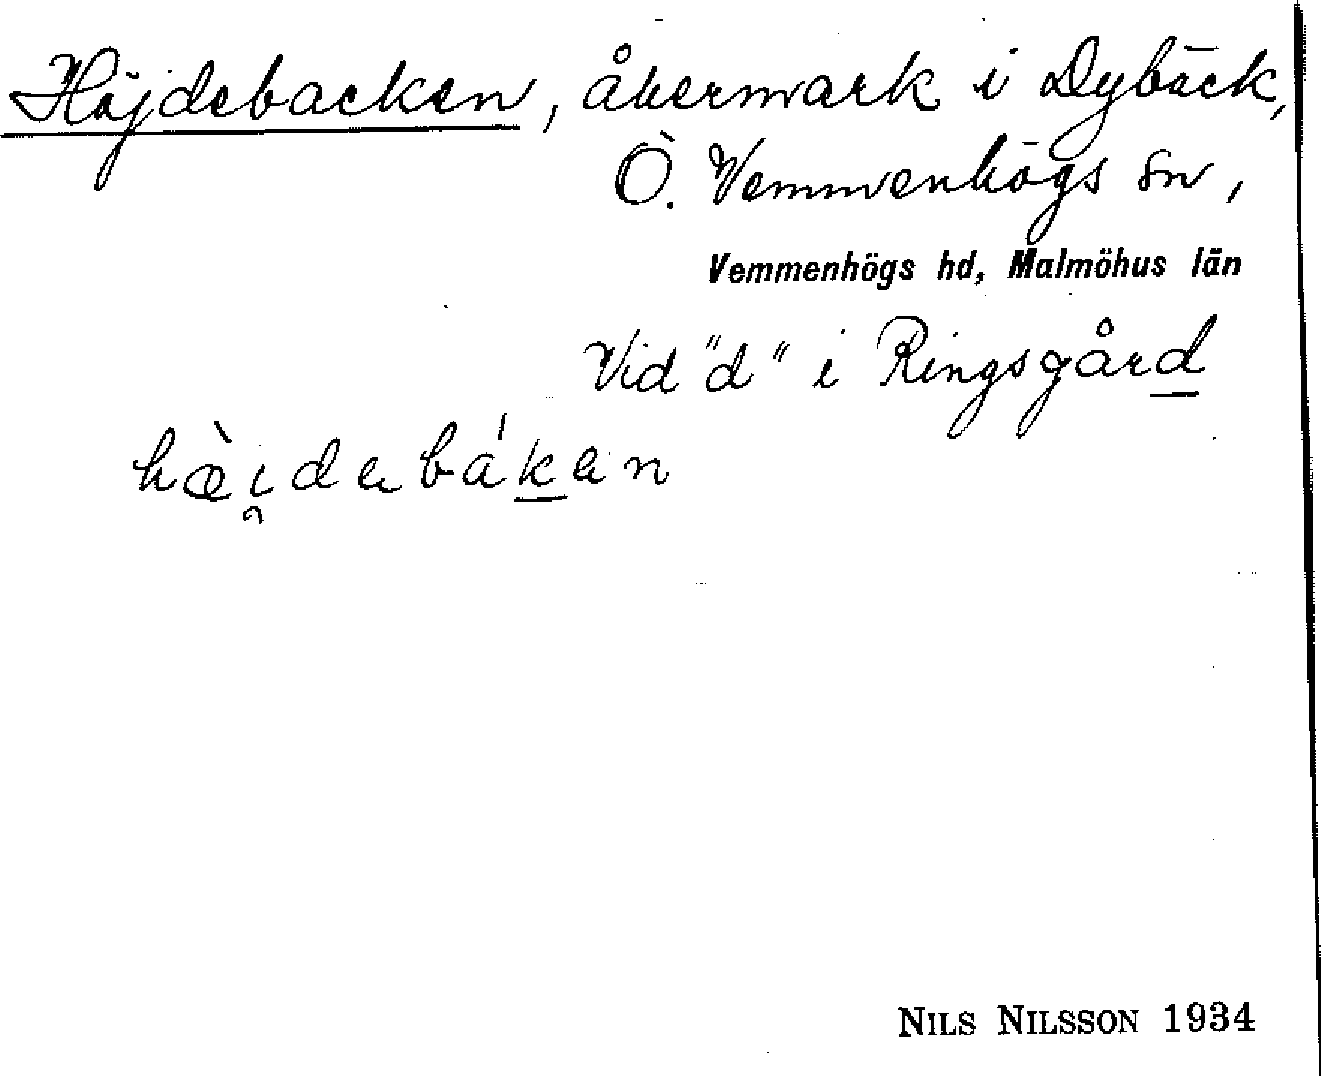 Höjdebacken, åkermark i Dybäck,
Ö. Vemmenhögs sn,
Vemmenhögs hd, Malmöhus län
Vid "d" i Ringsgård
hæ̀i̯dabákan
NILS NILSSON 1934